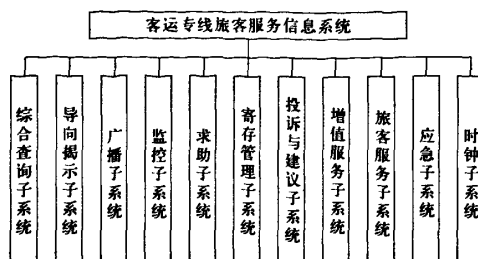 客运专线旅客服务信息系统
综合查询子系统
导向揭示子系统
广播子系统
监控子系统
求助子系统
寄存管理子系统
投诉与建议子系统
增值服务子系统
旅客服务子系统
应急子系统
时钟子系统